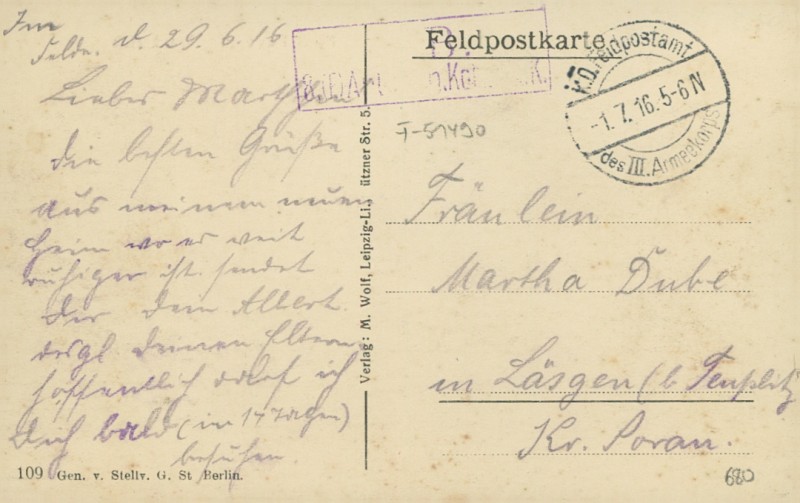 Im
Felde. d. 29.6.16
Liebes Martha
die besten Grüße
aus meinem neuen
Heim wo es weit
ruhiger ist. sendet
Dir dein Albert.
desgl deinen Eltern
hoffentlich darf ich
Dich bald (in 14 Tagen)
besuchen
109 Gen. v. Stellv. G. St Berlin.
Verlag: M. Wolf, Leipzig-Li. ützner Str. 5.
Feldpostkarte
B.
T-51490
K.D. Feldpostamt
-1.7.16.5-6N
des III. Armeekorps
Fräulein
Martha Dube
in Läsgen (b Teuplitz)
Kr. Soran.
680